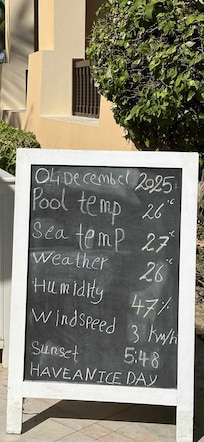 04 December 2025
Pool temp 26°c
Sea temp 27°c
Weather 26°c
Humidity 47%
Windspeed 3 Km/h
Sunset 5:48
HAVE A NICE DAY